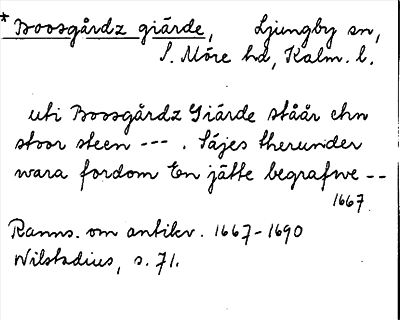 * Boosgårdz giärde, Ljungby sn,
S. Möre hd, Kalm. l.
uti Boosgårdz Giärde ståår ehn
stoor steen --- . Säjes therunder
wara fordom En jätte begrafwe --
1667
Ranns. om antikv. 1667-1690
Wilstadius, s. 71.